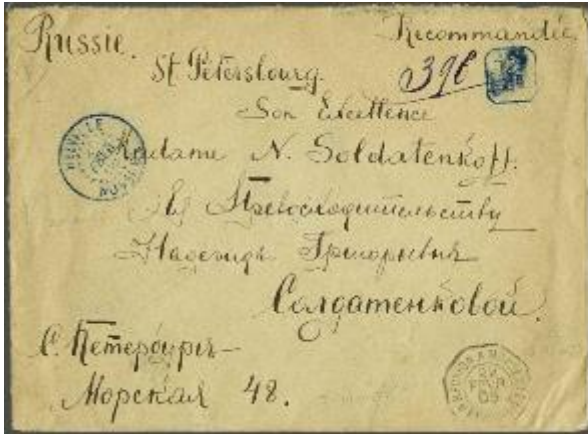 Russie. Recommandée
St Petersbourg.
Son Excellence
Madame N. Soldatenkoff.
Ея Превосходительству
Надежде Григорьевне
Солдатенковой.
С. Петербургъ
Морская 48.